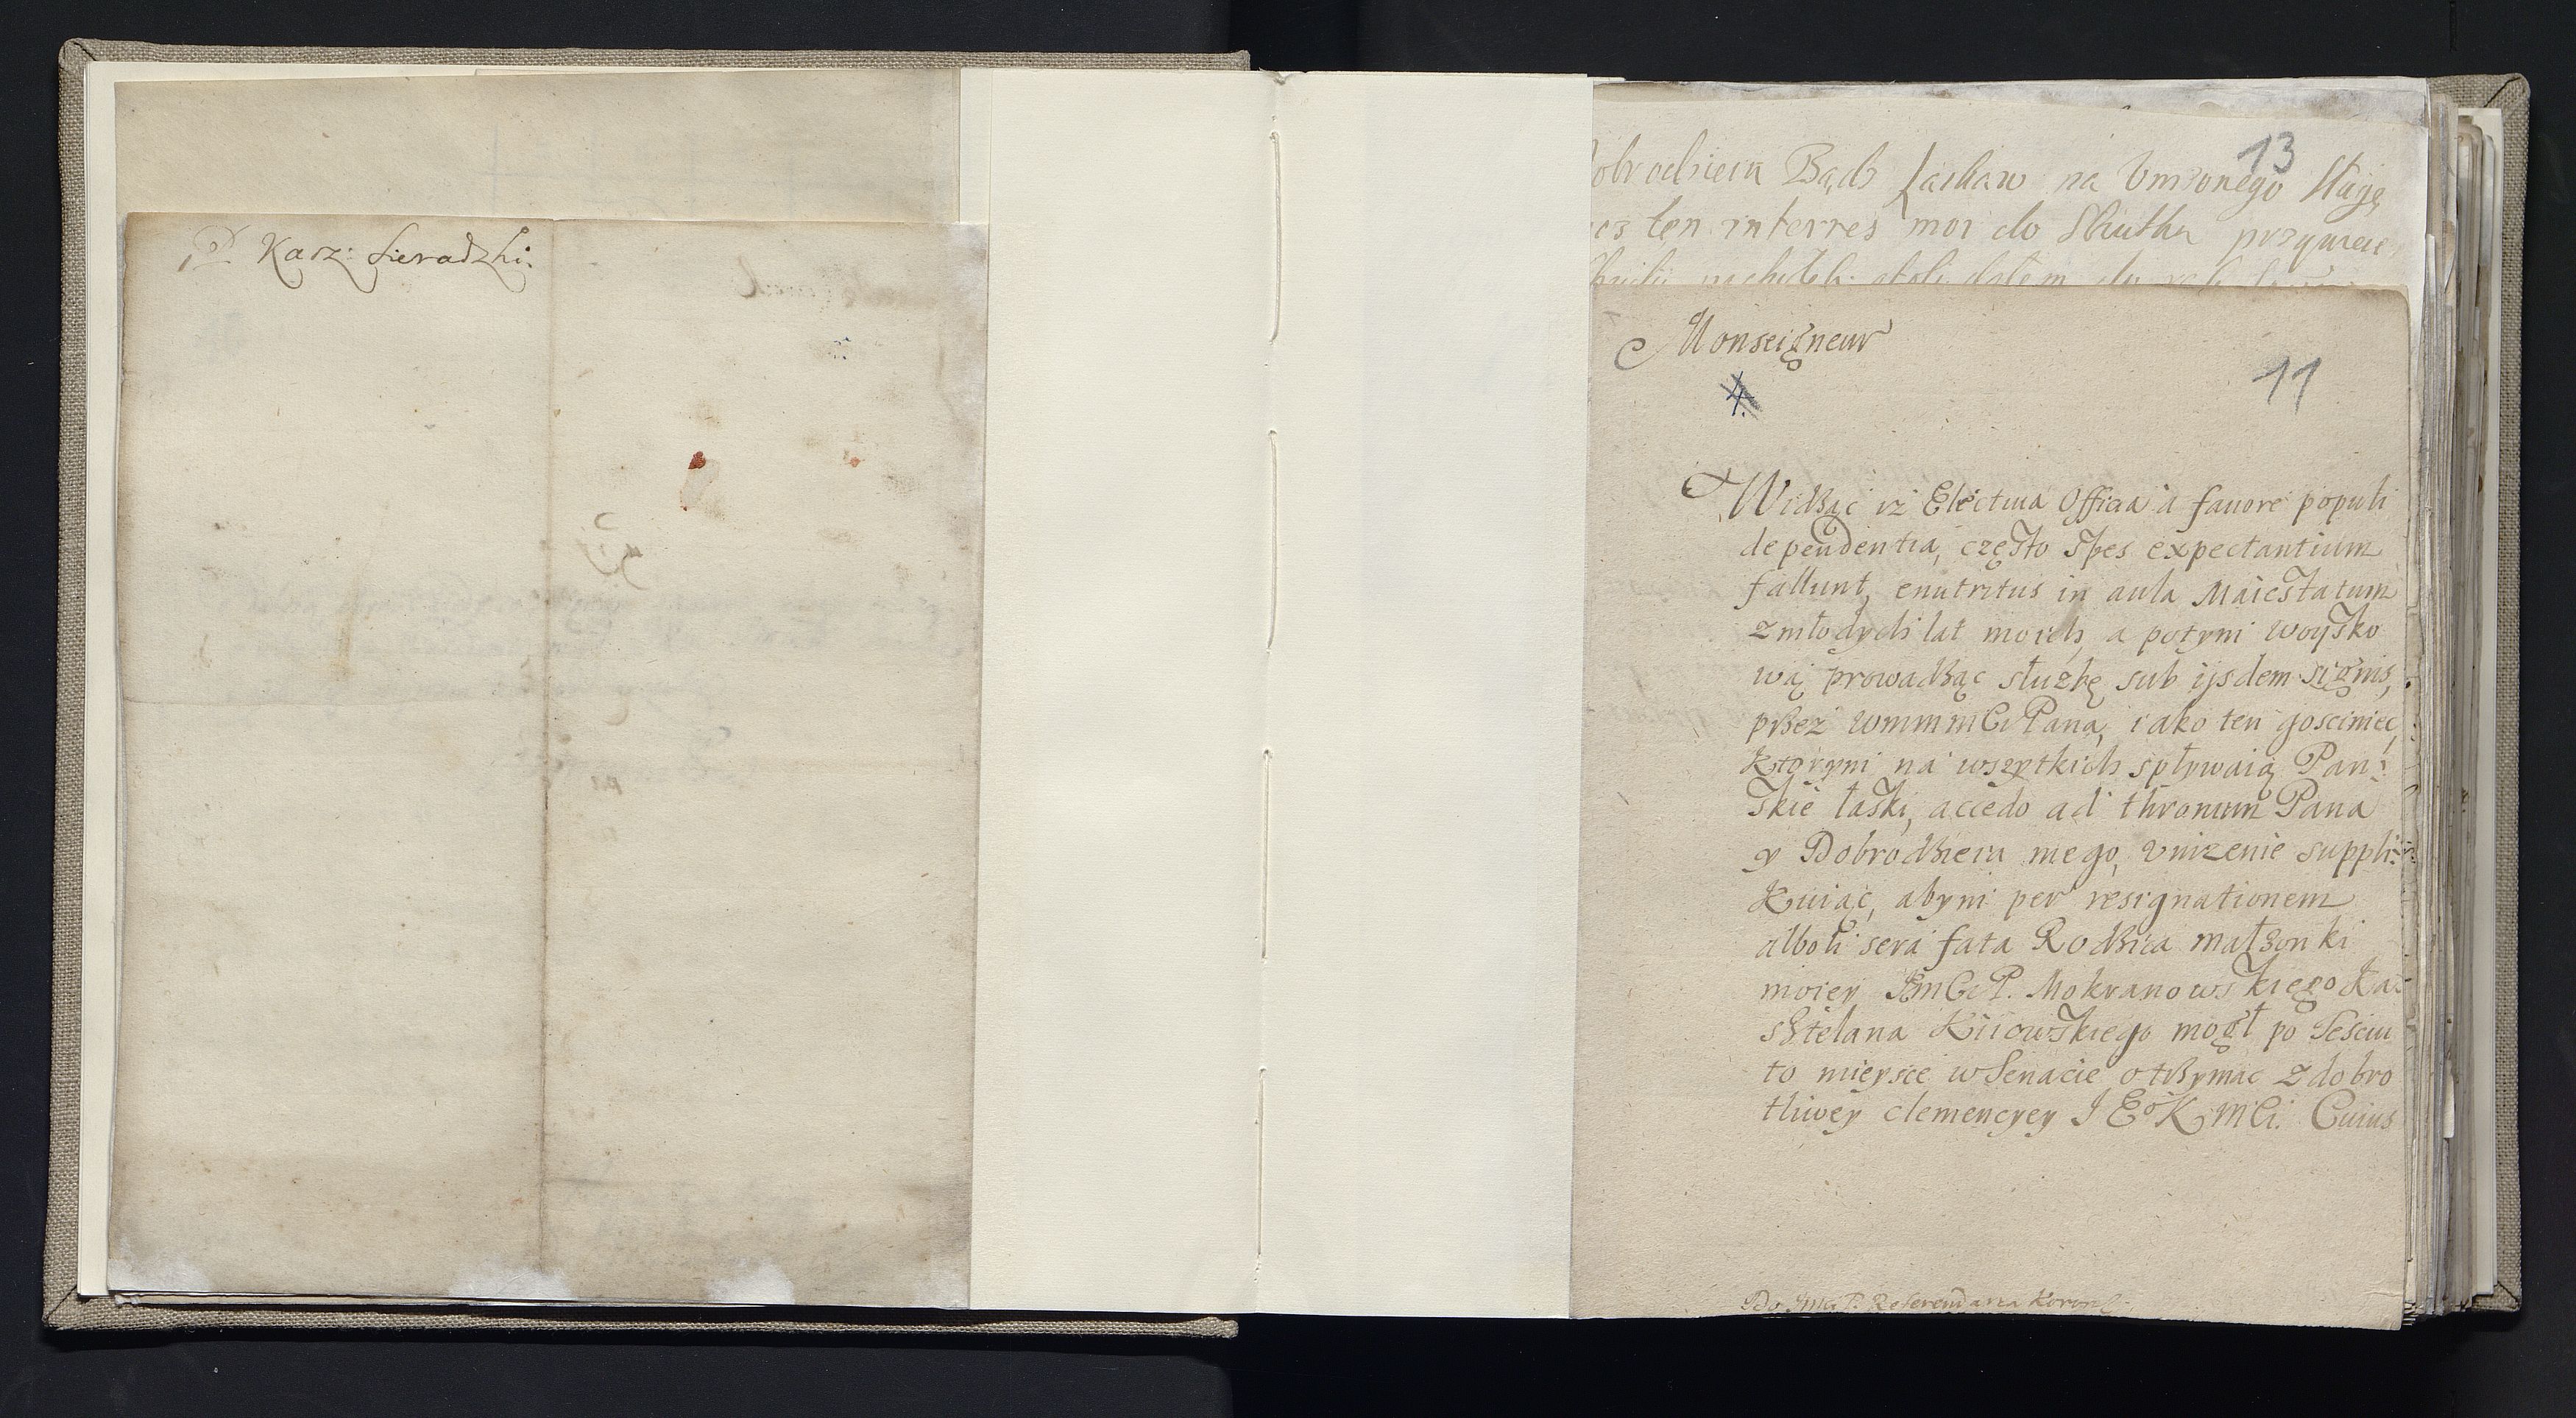 P Kasz: Sieradzki.
13
Bądz Łaskaw na Vnizonego Sługę
ten interres moi do Skutku
Monseigneur
4.
11
Widząc iż Electiua Officia à fauore populi
dependentia, często spes expectantium
fallunt, enutritus in aula Maiestatum
z młodych lat moich, a potym woysko
wą prowadząc służbę sub ijsdem signis,
przez WmmmCi Pana, iako ten gosciniec,
ktorym na wszytkich spływaią Pan:
skie łaski, accedo ad thronum Pana
y Dobrodzieia mego, vnizenie suppli:
kuiąc, abym per resignationem
alboli sera fata Rodzica małzonki
moiey JmCi P. Mokranowskiego Ka:
sztelana Kiiowskiego mogł po Sesciu
to mieysce w Senacie otrzymac z dobro
tliwey clemencyey J E° K mCi. Cuius
Do JmCi P. Referendarza Koron